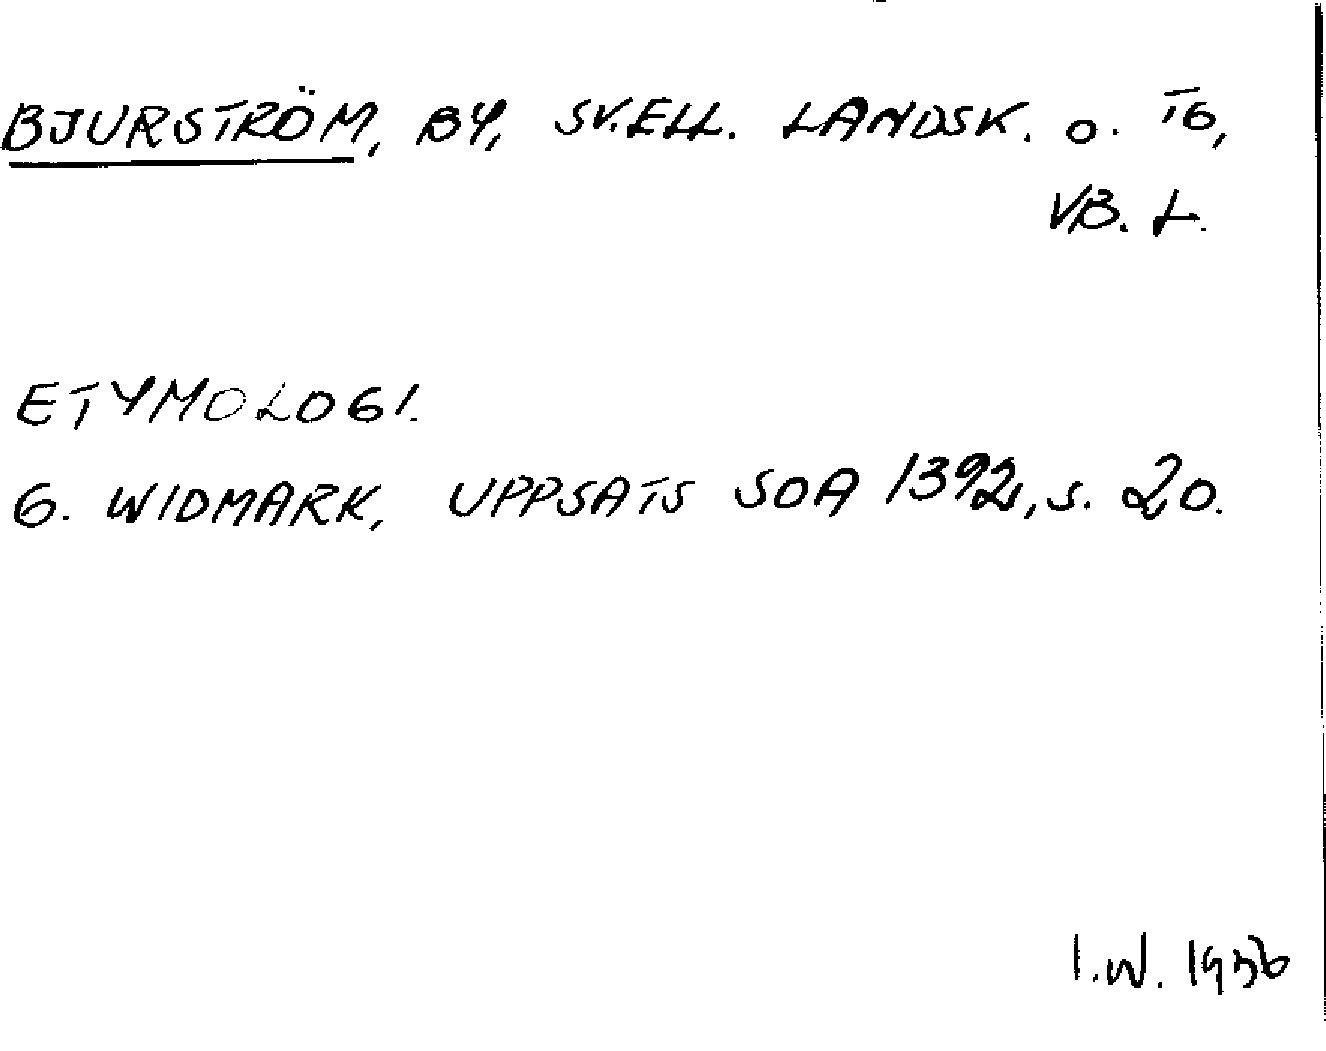 BJURSTRÖM, BY, SKELL. LANDSK. O. TG,
VB. L.
ETYMOLOGI.
G. WIDMARK, UPPSATS SOA 1392, S. 20.
I.W. 1956